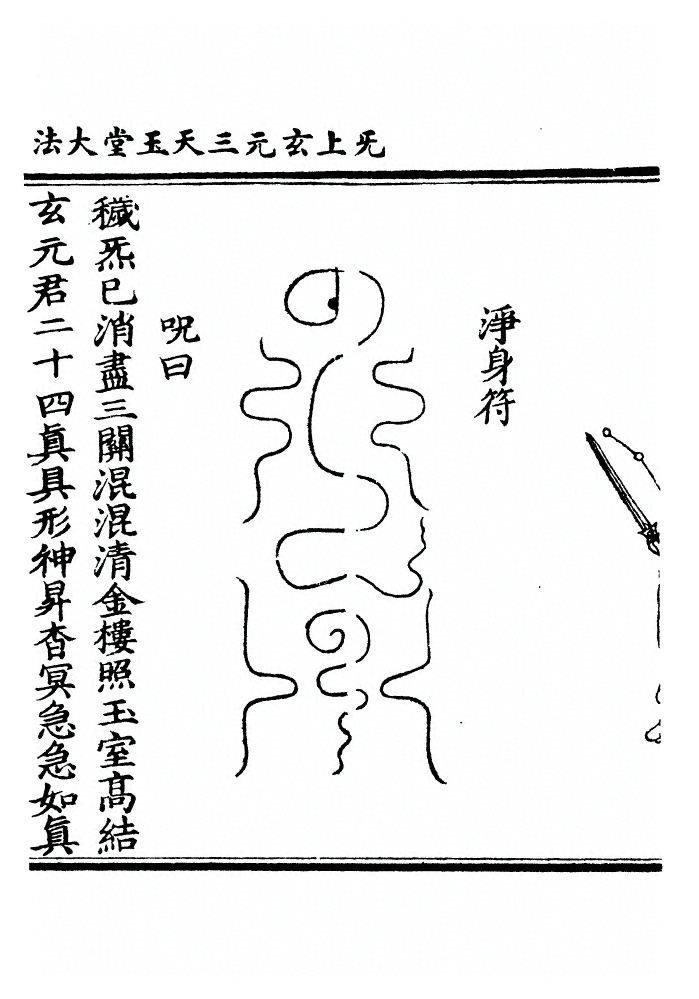 无上玄元三天玉堂大法
淨身符
呪曰
穢炁已消盡三關混混清金樓照玉室髙結
玄元君二十四眞具形神昇杳冥急急如眞